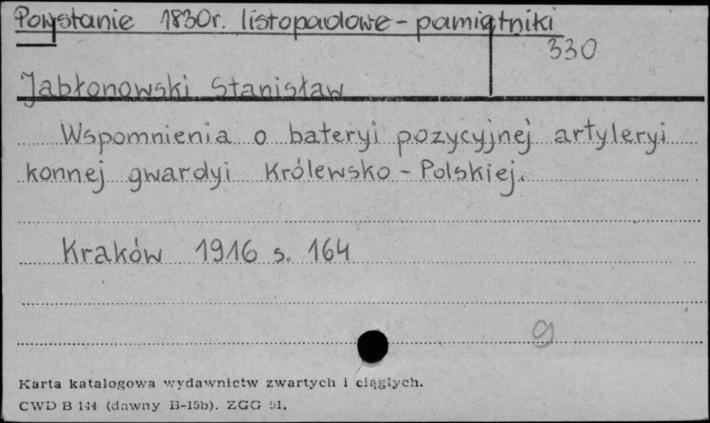 Powstanie 1830r. listopadowe - pamiątniki
330
Jabłonowski Stanisław
Wspomnienia o bateryi pozycyjnej artyleryi
konnej gwardyi Królewsko - Polskiej.
Kraków 1916 s. 164
g
Karta katalogowa wydawnictw zwartych i ciągłych.
CWD B 144 (dawny B-15b). ZGG 91.